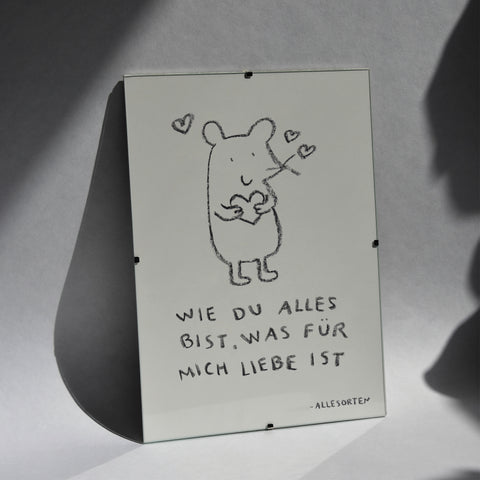 WIE DU ALLES
BIST, WAS FÜR
MICH LIEBE IST
-ALLESORTEN